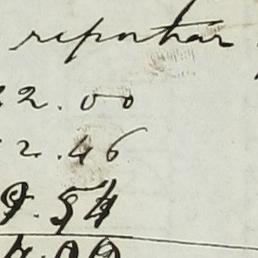 reportar
2.00
2.46
9.54